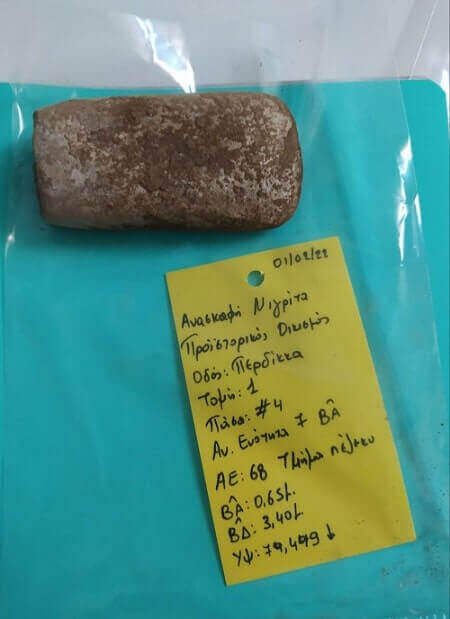 01/02/22
Ανασκαφή Νιγρίτα
Προϊστορικός Οικισμός
Οδός: Περδίκκα
Τομή: 1
Πάσα: #4
Αν. Ενότητα 7 ΒΑ
ΑΕ: 68 Τμήμα πέλεκυ
ΒΑ: 0,65μ.
ΒΔ: 3,40μ
ΥΨ: 79,449 ↓